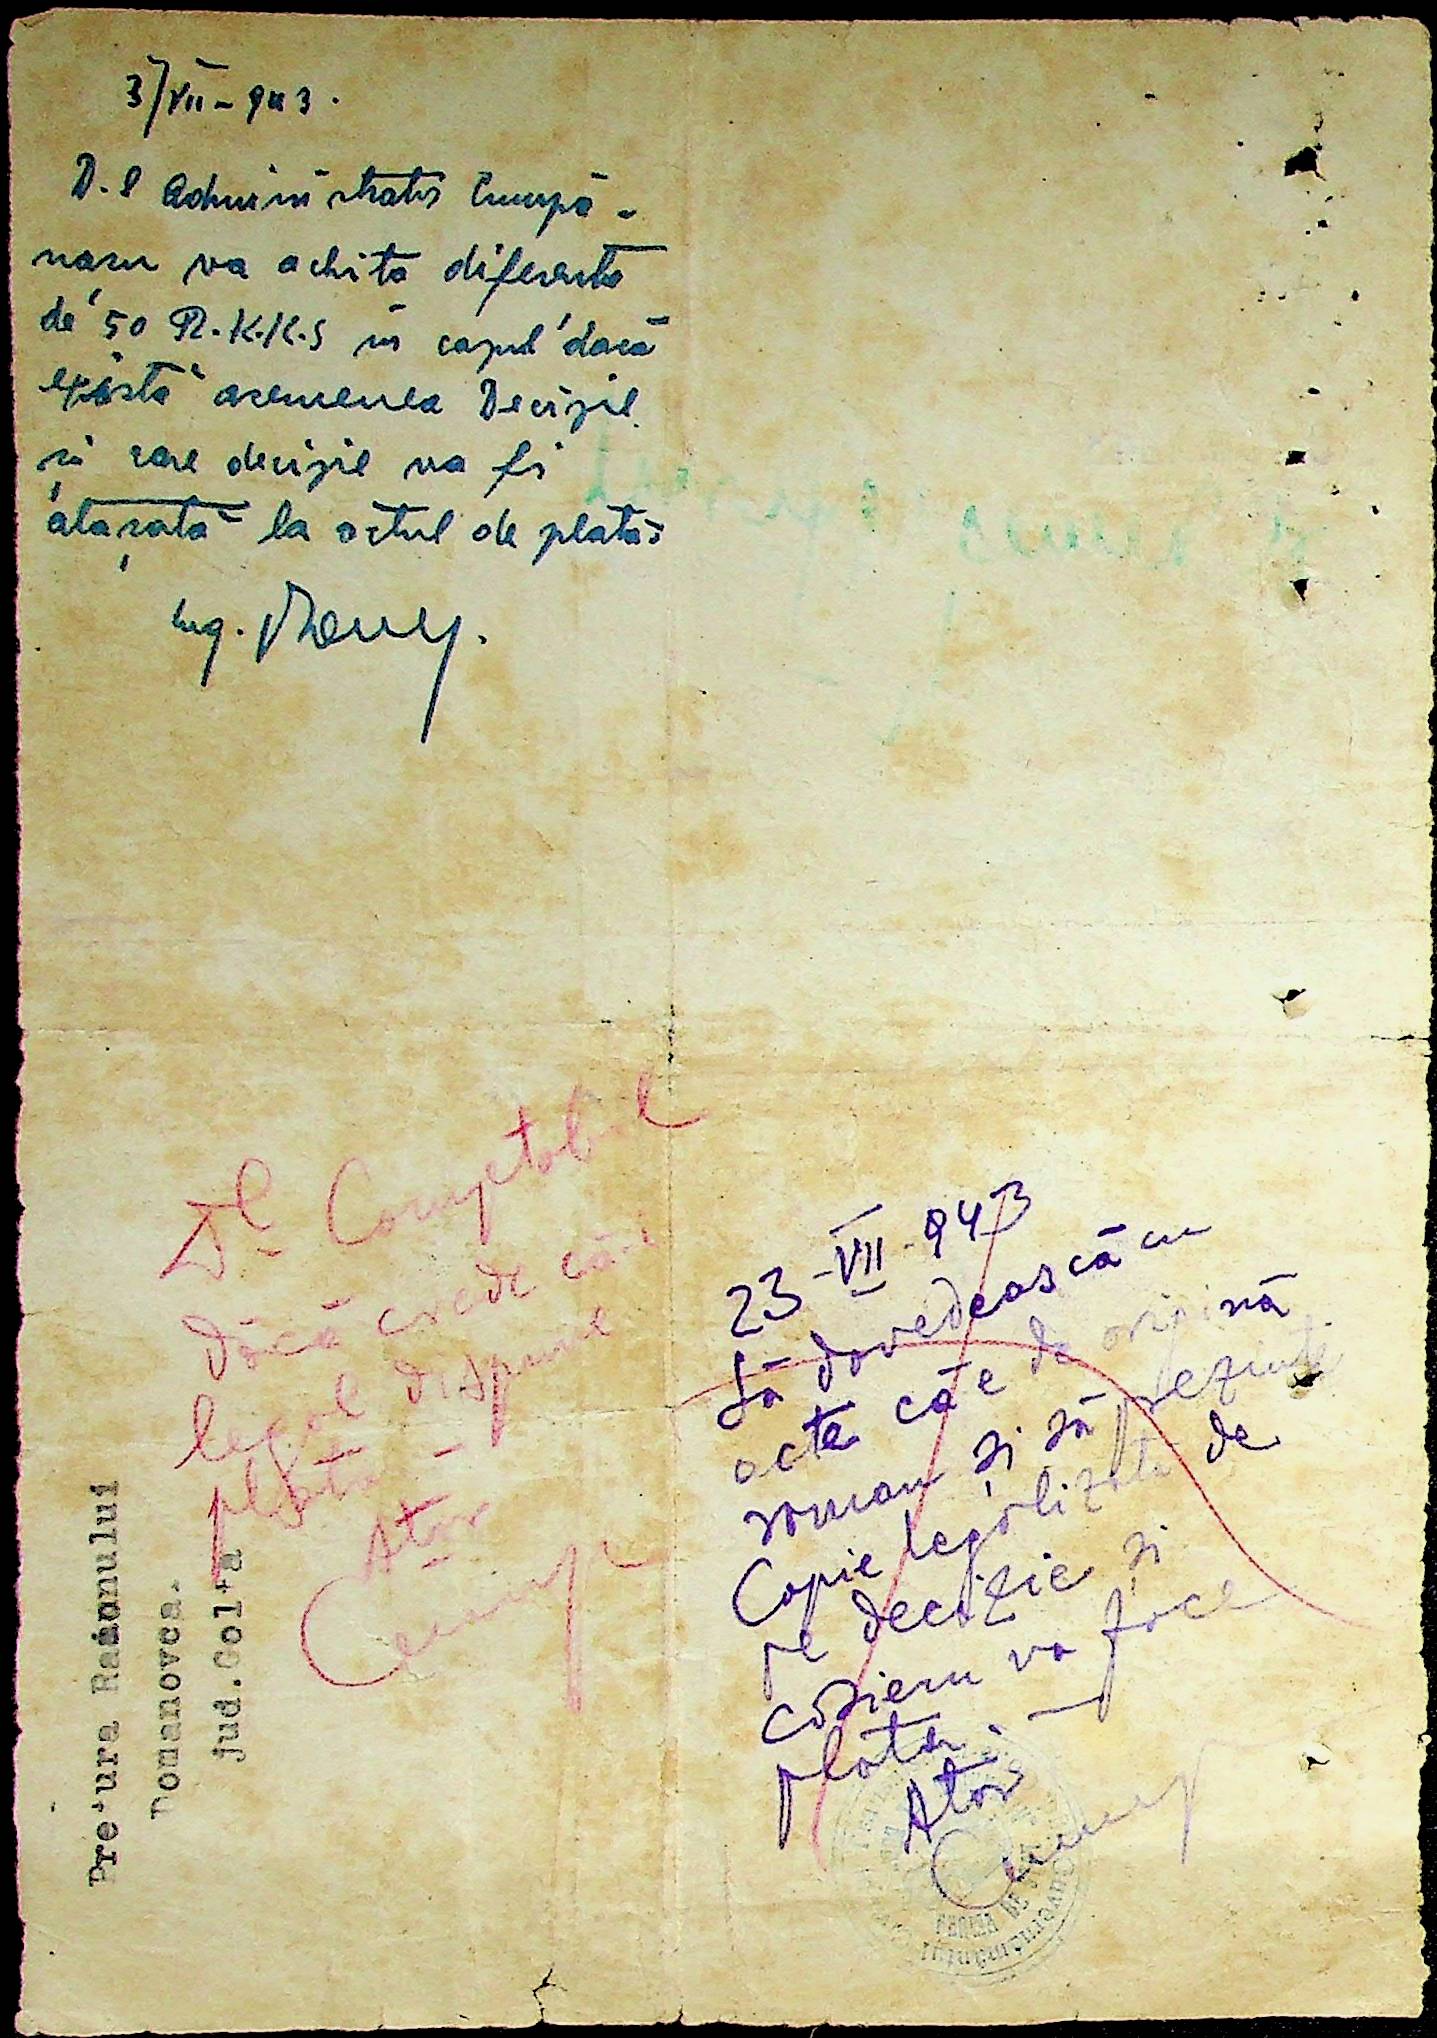 3/VII-943.
D.l Administrator Ciumpă-
nasu va achita diferenta
de 50 R.K.K.S în cazul dacă
există asemenea Decizie
și care decizie va fi
atașată la actul de plată
Ing.
Dl Comptabil
Dacă crede că-i
legal dispune
plata -
Ator
23-VII-943
Să dovedească cu
acte că e de origină
roman și să prezinte
Copie legalizată de
pe decizie și
casieru va face
plata. —
Ator
Pre'ura Raionului
Domanovca.
jud.Golta
Guvernământul